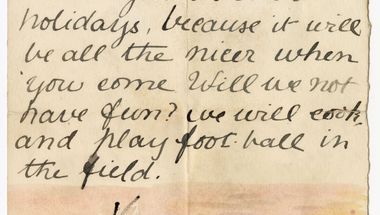 holidays, because it will
be all the nicer when
you come Will we not
have fun? we will cook,
and play foot-ball in
the field.